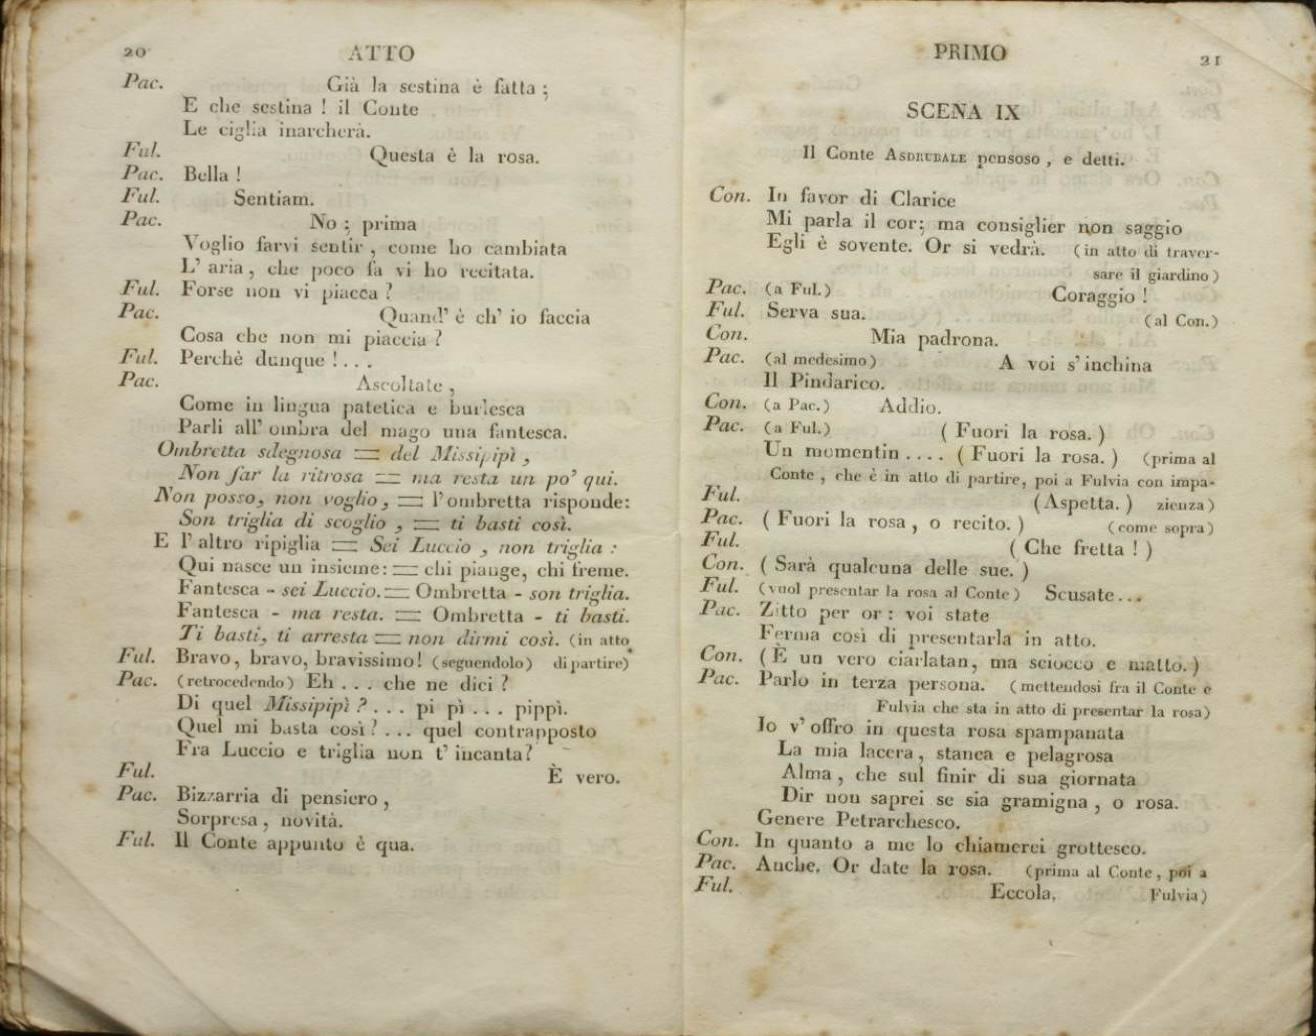 20 ATTO
Pac. Già la sestina è fatta ;
E che sestina ! il Conte
Le ciglia inarcherà.
Ful. Questa è la rosa.
Pac. Bella !
Ful. Sentiam.
Pac. No ; prima
Voglio farvi sentir , come ho cambiata
L' aria , che poco fa vi ho recitata.
Ful. Forse non vi piacca ?
Pac. Quand' è ch' io faccia
Cosa che non mi piaccia ?
Ful. Perchè dunque ! . . .
Pac. Ascoltate ,
Come in lingua patetica e burlesca
Parli all' ombra del mago una fantesca.
Ombretta sdegnosa == del Missipipì ,
Non far la ritrosa == ma resta un po' qui.
Non posso, non voglio , == l'ombretta risponde:
Son triglia di scoglio , == ti basti così.
E l'altro ripiglia == Sei Luccio , non triglia :
Qui nasce un insieme: == chi piange, chi freme.
Fantesca - sei Luccio. == Ombretta - son triglia.
Fantesca - ma resta. == Ombretta - ti basti.
Ti basti, ti arresta == non dirmi così. (in atto
Ful. Bravo, bravo, bravissimo! (seguendolo) di partire)
Pac. (retrocedendo) Eh . . . che ne dici ?
Di quel Missipipì ? . . . pi pì . . . pippì.
Quel mi basta così ? . . . quel contrapposto
Fra Luccio e triglia non t' incanta?
Ful. È vero.
Pac. Bizzarria di pensiero ,
Sorpresa , novità.
Ful. Il Conte appunto è qua.
PRIMO 21
SCENA IX
Il Conte ASDRUBALE pensoso , e detti.
Con. In favor di Clarice
Mi parla il cor; ma consiglier non saggio
Egli è sovente. Or si vedrà. (in atto di traver-
sare il giardino)
Pac. (a Ful.) Coraggio !
Ful. Serva sua. (al Con.)
Con. Mia padrona.
Pac. (al medesimo) A voi s'inchina
Il Pindarico.
Con. (a Pac.) Addio.
Pac. (a Ful.) ( Fuori la rosa. )
Un momentin .... ( Fuori la rosa. ) (prima al
Conte , che è in atto di partire, poi a Fulvia con impa-
Ful. (Aspetta. ) zienza)
Pac. ( Fuori la rosa , o recito. ) (come sopra)
Ful. ( Che fretta ! )
Con. ( Sarà qualcuna delle sue. )
Ful. (vuol presentar la rosa al Conte) Scusate...
Pac. Zitto per or : voi state
Ferma così di presentarla in atto.
Con. ( È un vero ciarlatan, ma sciocco e matto. )
Pac. Parlo in terza persona. (mettendosi fra il Conte e
Fulvia che sta in atto di presentar la rosa)
Io v' offro in questa rosa spampanata
La mia lacera , stanca e pelagrosa
Alma , che sul finir di sua giornata
Dir non saprei se sia gramigna , o rosa.
Genere Petrarchesco.
Con. In quanto a me lo chiamerei grottesco.
Pac. Anche. Or date la rosa. (prima al Conte , poi a
Ful. Eccola. Fulvia)